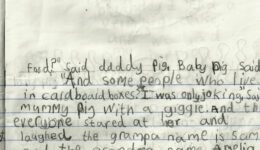 Ford?" said daddy Pig, Baby Pig said
"And some people who live
in cardboard boxes." I was only joking" Say
mummy Pig with a giggle. And the
everyone stared at her and
laughed the grampa name is Sam
and the grandma name Amelia